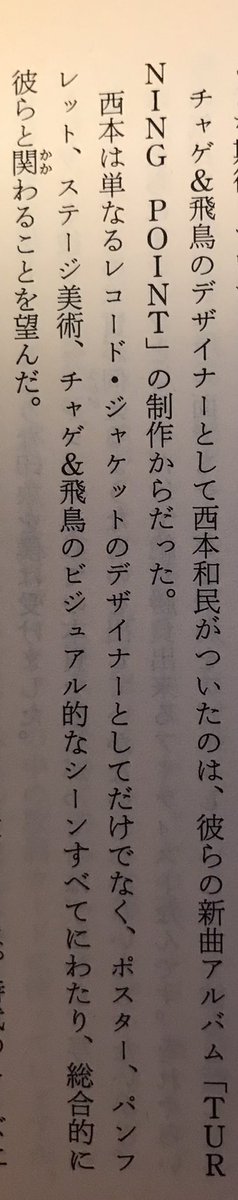 チャゲ&飛鳥のデザイナーとして西本和民がついたのは、彼らの新曲アルバム「TUR
NING POINT」の制作からだった。
西本は単なるレコード・ジャケットのデザイナーとしてだけでなく、ポスター、パンフ
レット、ステージ美術、チャゲ&飛鳥のビジュアル的なシーンすべてにわたり、総合的に
彼らと関わることを望んだ。